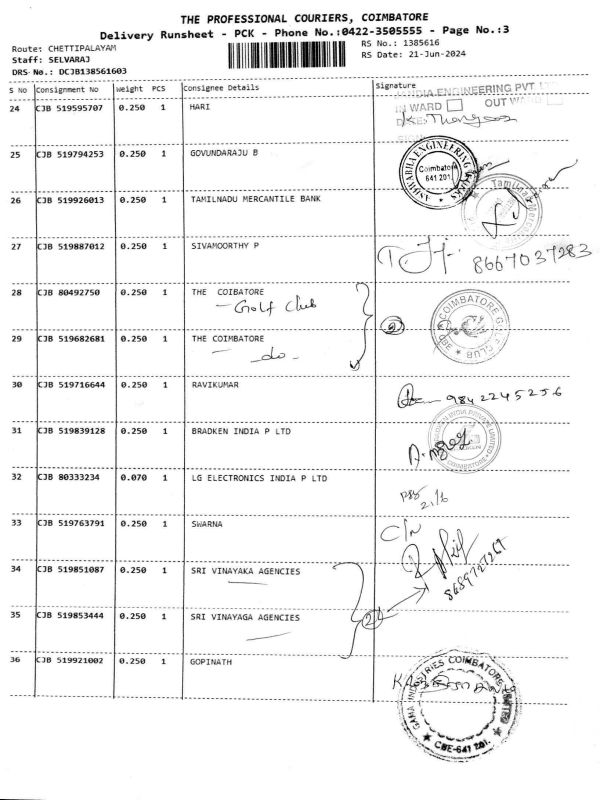 THE PROFESSIONAL COURIERS, COIMBATORE
Delivery Runsheet - PCK - Phone No.:0422-3505555 - Page No.:3
Route: CHETTIPALAYAM
RS No.: 1385616
Staff: SELVARAJ
RS Date: 21-Jun-2024
DRS No.: DCJB138561603
S No Consignment No Weight PCS Consignee Details Signature
24 CJB 519595707 0.250 1 HARI
INDIA ENGINEERING PVT
IN WARD OUT WARD
25 CJB 519794253 0.250 1 GOVUNDARAJU B
ENGINEERING
Coimbatore
641 201
26 CJB 519926013 0.250 1 TAMILNADU MERCANTILE BANK
Tamilnad
27 CJB 519887012 0.250 1 SIVAMOORTHY P
8667037283
28 CJB 80492750 0.250 1 THE COIBATORE
- Golf Club
COIMBATORE GOLF CLUB
29 CJB 519682681 0.250 1 THE COIMBATORE
- do -
30 CJB 519716644 0.250 1 RAVIKUMAR
9842245256
31 CJB 519839128 0.250 1 BRADKEN INDIA P LTD
INDIA PRIVATE LIMITED
COIMBATORE
32 CJB 80333234 0.070 1 LG ELECTRONICS INDIA P LTD
21/6
33 CJB 519763791 0.250 1 SWARNA
C/N
34 CJB 519851087 0.250 1 SRI VINAYAKA AGENCIES
35 CJB 519853444 0.250 1 SRI VINAYAGA AGENCIES
36 CJB 519921002 0.250 1 GOPINATH
GAMA INDUSTRIES COIMBATORE LIMITED
CBE-641 201.